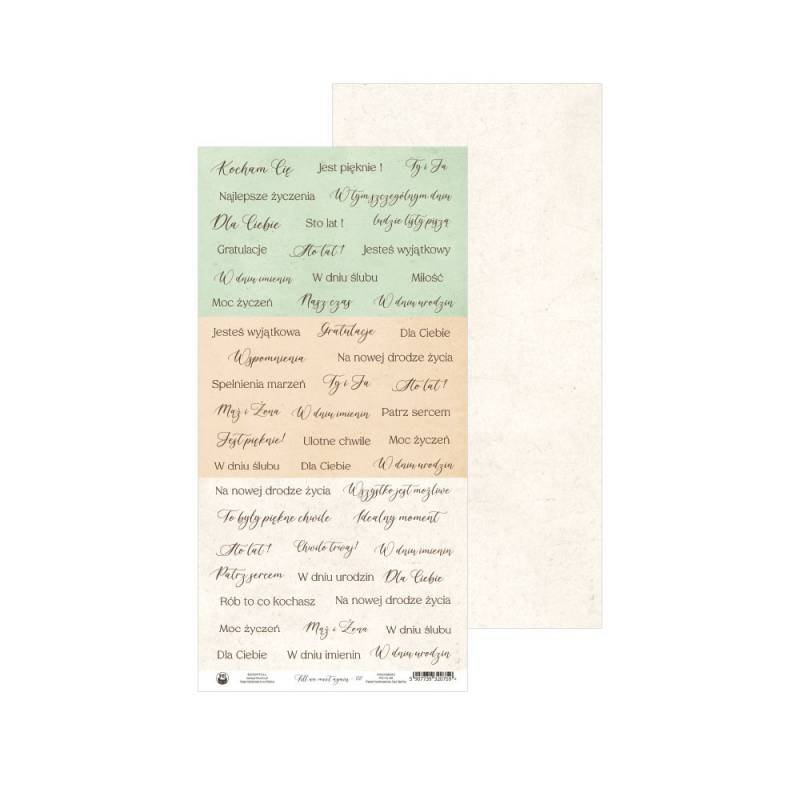 Kocham Cię Jest pięknie ! Ty i Ja
Najlepsze życzenia W tym szczególnym dniu
Dla Ciebie Sto lat ! ludzie listy piszą
Gratulacje Sto lat ! Jesteś wyjątkowy
W dniu imienin W dniu ślubu Miłość
Moc życzeń Nasz czas W dniu urodzin
Jesteś wyjątkowa Gratulacje Dla Ciebie
Wspomnienia Na nowej drodze życia
Spełnienia marzeń Ty i Ja Sto lat !
Mąż i Żona W dniu imienin Patrz sercem
Jest pięknie! Ulotne chwile Moc życzeń
W dniu ślubu Dla Ciebie W dniu urodzin
Na nowej drodze życia Wszystko jest możliwe
To były piękne chwile Idealny moment
Sto lat ! Chwilo trwaj! W dniu imienin
Patrz sercem W dniu urodzin Dla Ciebie
Rób to co kochasz Na nowej drodze życia
Moc życzeń Mąż i Żona W dniu ślubu
Dla Ciebie W dniu imienin W dniu urodzin
Till we meet again - 02
5 907739 320759 >